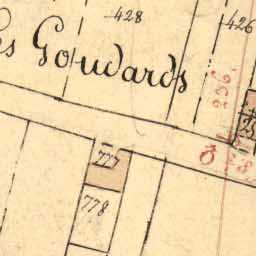 428
426
es Goudards
236.
777
778